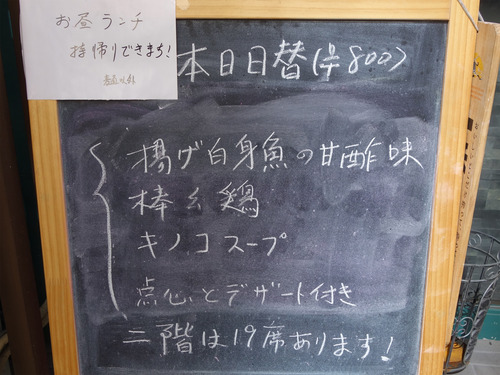 お昼ランチ
持帰りできます!
本日日替(¥800)
揚げ白身魚の甘酢味
棒々鶏
キノコスープ
点心とデザート付き
二階は19席あります!